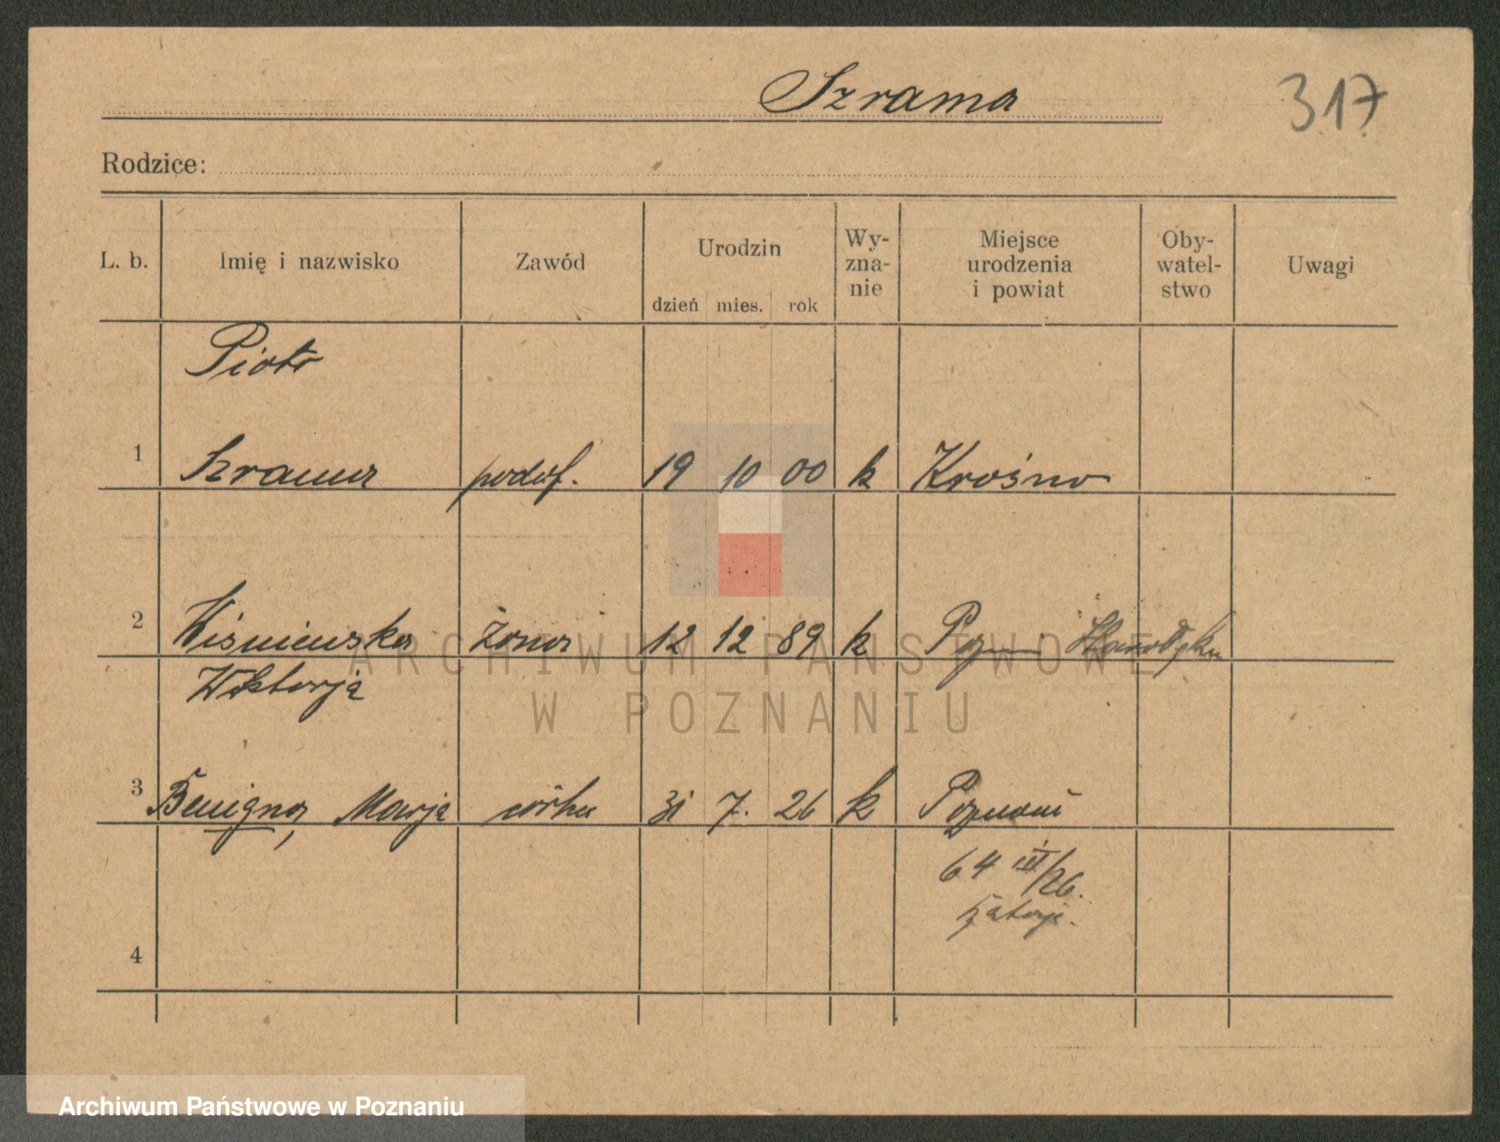 Szrama
317
Rodzice:
L. b. Imię i nazwisko Zawód Urodzin dzień mies. rok Wy-zna-nie Miejsce urodzenia i powiat Oby-watel-stwo Uwagi
Piotr
1 Szrama podof. 19 10 00 k Krośno
2 Wiśniewska żona 12 12 89 k
Wiktorja
3 Benigna, Marja córka 31 7. 26 k Poznań
64 III/26.
4
ARCHIWUM PAŃSTWOWE
W POZNANIU
Archiwum Państwowe w Poznaniu